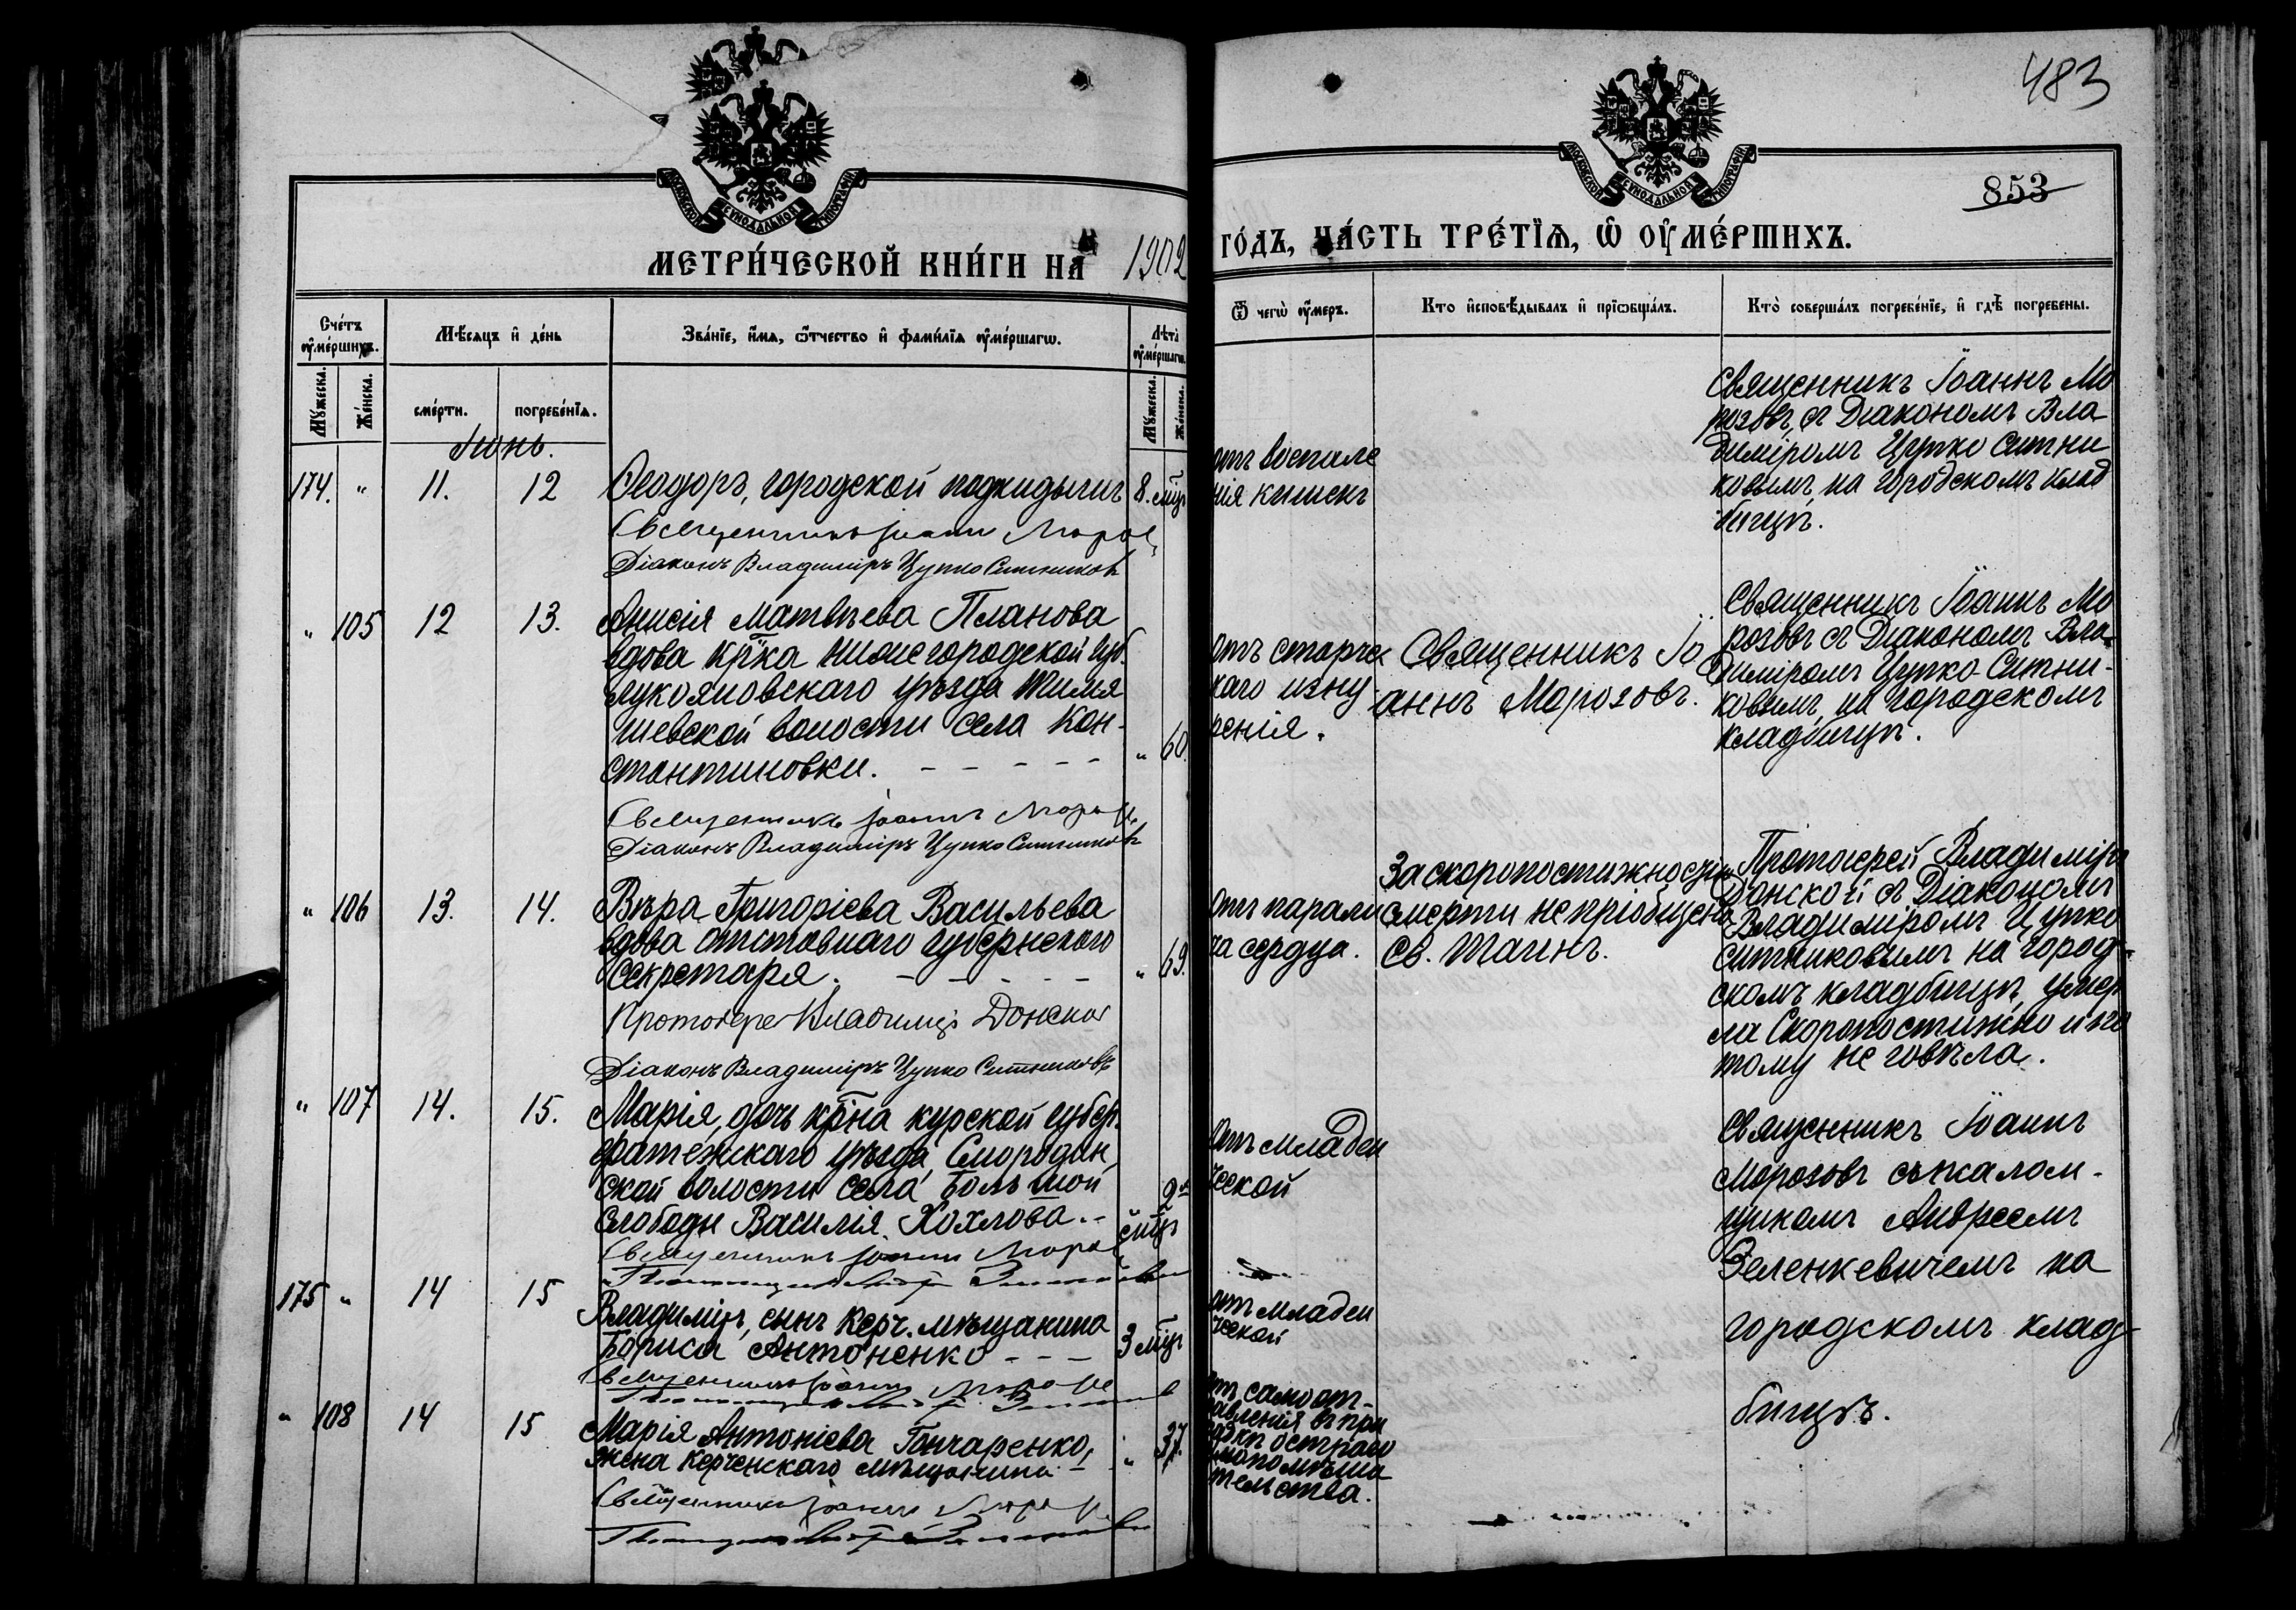 483
853
МОСКОВСКОЙ СѴНОДАЛЬНОЙ ТИПОГРАФІИ
МОСКОВСКОЙ СѴНОДАЛЬНОЙ ТИПОГРАФІИ
МЕТРИ́ЧЕСКОЙ КНИ́ГИ НА 1902 ГО́ДЪ, ЧА́СТЬ ТРЕ́ТЇѦ, Ѡ ОУМЕ́РШИХЪ.
Счéтъ оумéршихъ.
Мѣ́сяцъ и дéнь
Звáнїе, и́мѧ, ѻ́тчество и фамíлїѧ оумéршагѡ.
Лѣтà оумéршагѡ.
Ѿ чегѡ̀ оу́меръ.
Кто исповѣ́дывалъ и прїѡбщáлъ.
Ктò совершáлъ погребéнїе, и гдѣ̀ погребены.
Мýжеска.
Жéнска.
смéрти.
погребéнїѧ.
Мýжеска.
Жéнска.
Іюнь.
174. " 11. 12
Ѳеодоръ, городской подкидышъ 8. мцъ
Священникъ Іоаннъ Мороз
Діаконъ Владиміръ Цупко Ситников
отъ воспале
нія кишекъ
Священникъ Іоаннъ Мо
розовъ, съ Діакономъ Вла
диміромъ Цупко Ситни
ковымъ, на городскомъ клад
бищѣ.
" 105 12 13.
Анисія Матвѣева Планова
вдова кр̃ка нижегородской губ.
лукояновскаго уѣзда
шевской волости села Кон-
стантиновки. - - - - - " 60.
Священникъ Іоаннъ Мороз
Діаконъ Владиміръ Цупко Ситников
отъ старчес
каго изну
ренія.
Священникъ Іо
аннъ Морозовъ.
Священникъ Іоаннъ Мо
розовъ съ Діакономъ Вла
диміромъ Цупко-Ситни-
ковымъ, на городскомъ
кладбищѣ.
" 106 13. 14.
Вѣра Григоріева Васильева
вдова отставнаго губернского
Секретаря. - - - - " 69.
Протоіерей Владиміръ Донской
Діаконъ Владиміръ Цупко Ситниковъ
отъ парали
ча сердца.
За скоропостижностію
смерти не пріобщена
св. Таинъ.
Протоіерей Владиміръ
Донской съ Діакономъ
Владиміромъ Цупко
Ситниковымъ на город-
скомъ кладбищѣ, умер
ла Скоропостижно и по
тому не говѣла.
" 107 14. 15.
Марія, дочь кр̃на курской губер.
фатежскаго уѣзда, Смородин
ской волости села Большой
Слободы Василія Хохлова. - 9 мцъ
Священникъ Іоаннъ Мороз
отъ младен
ческой
Священникъ Іоаннъ
Морозовъ съ псалом-
щикомъ Андреемъ
Зеленкевичемъ на
городскомъ клад-
бищѣ.
175 " 14 15
Владиміръ, сынъ Керч. мѣщанина
Бориса Антоненко - - - 3 мцъ
Священникъ Іоаннъ Мороз
отъ младен
ческой
" 108 14 15
Марія Антоніева Гончаренко,
жена Керченскаго мѣщанина - " 37.
Священникъ Іоаннъ Мороз
отъ самоот-
равленія въ при
падкѣ остраго
умопомѣша
тельства.